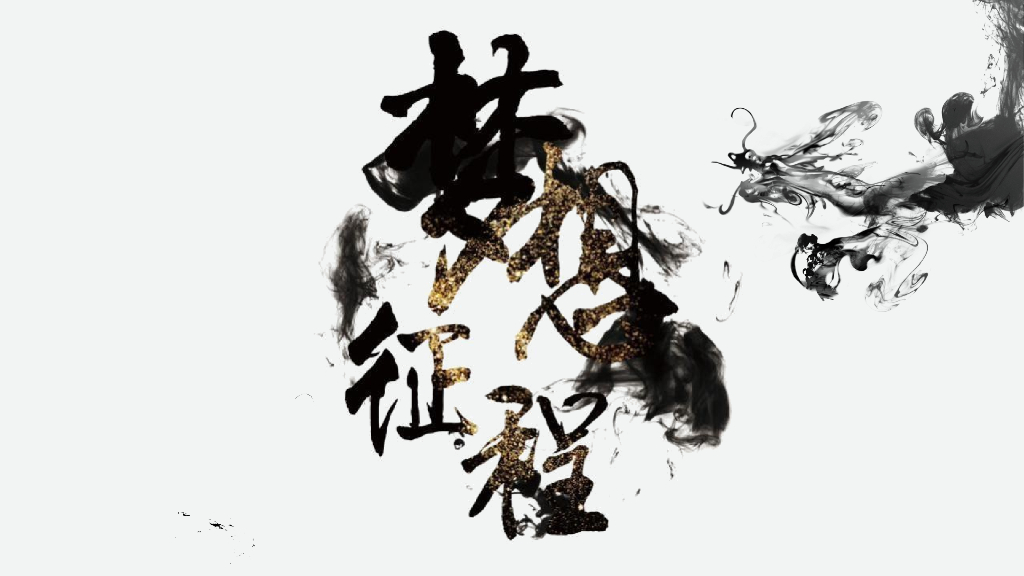 梦想
征程